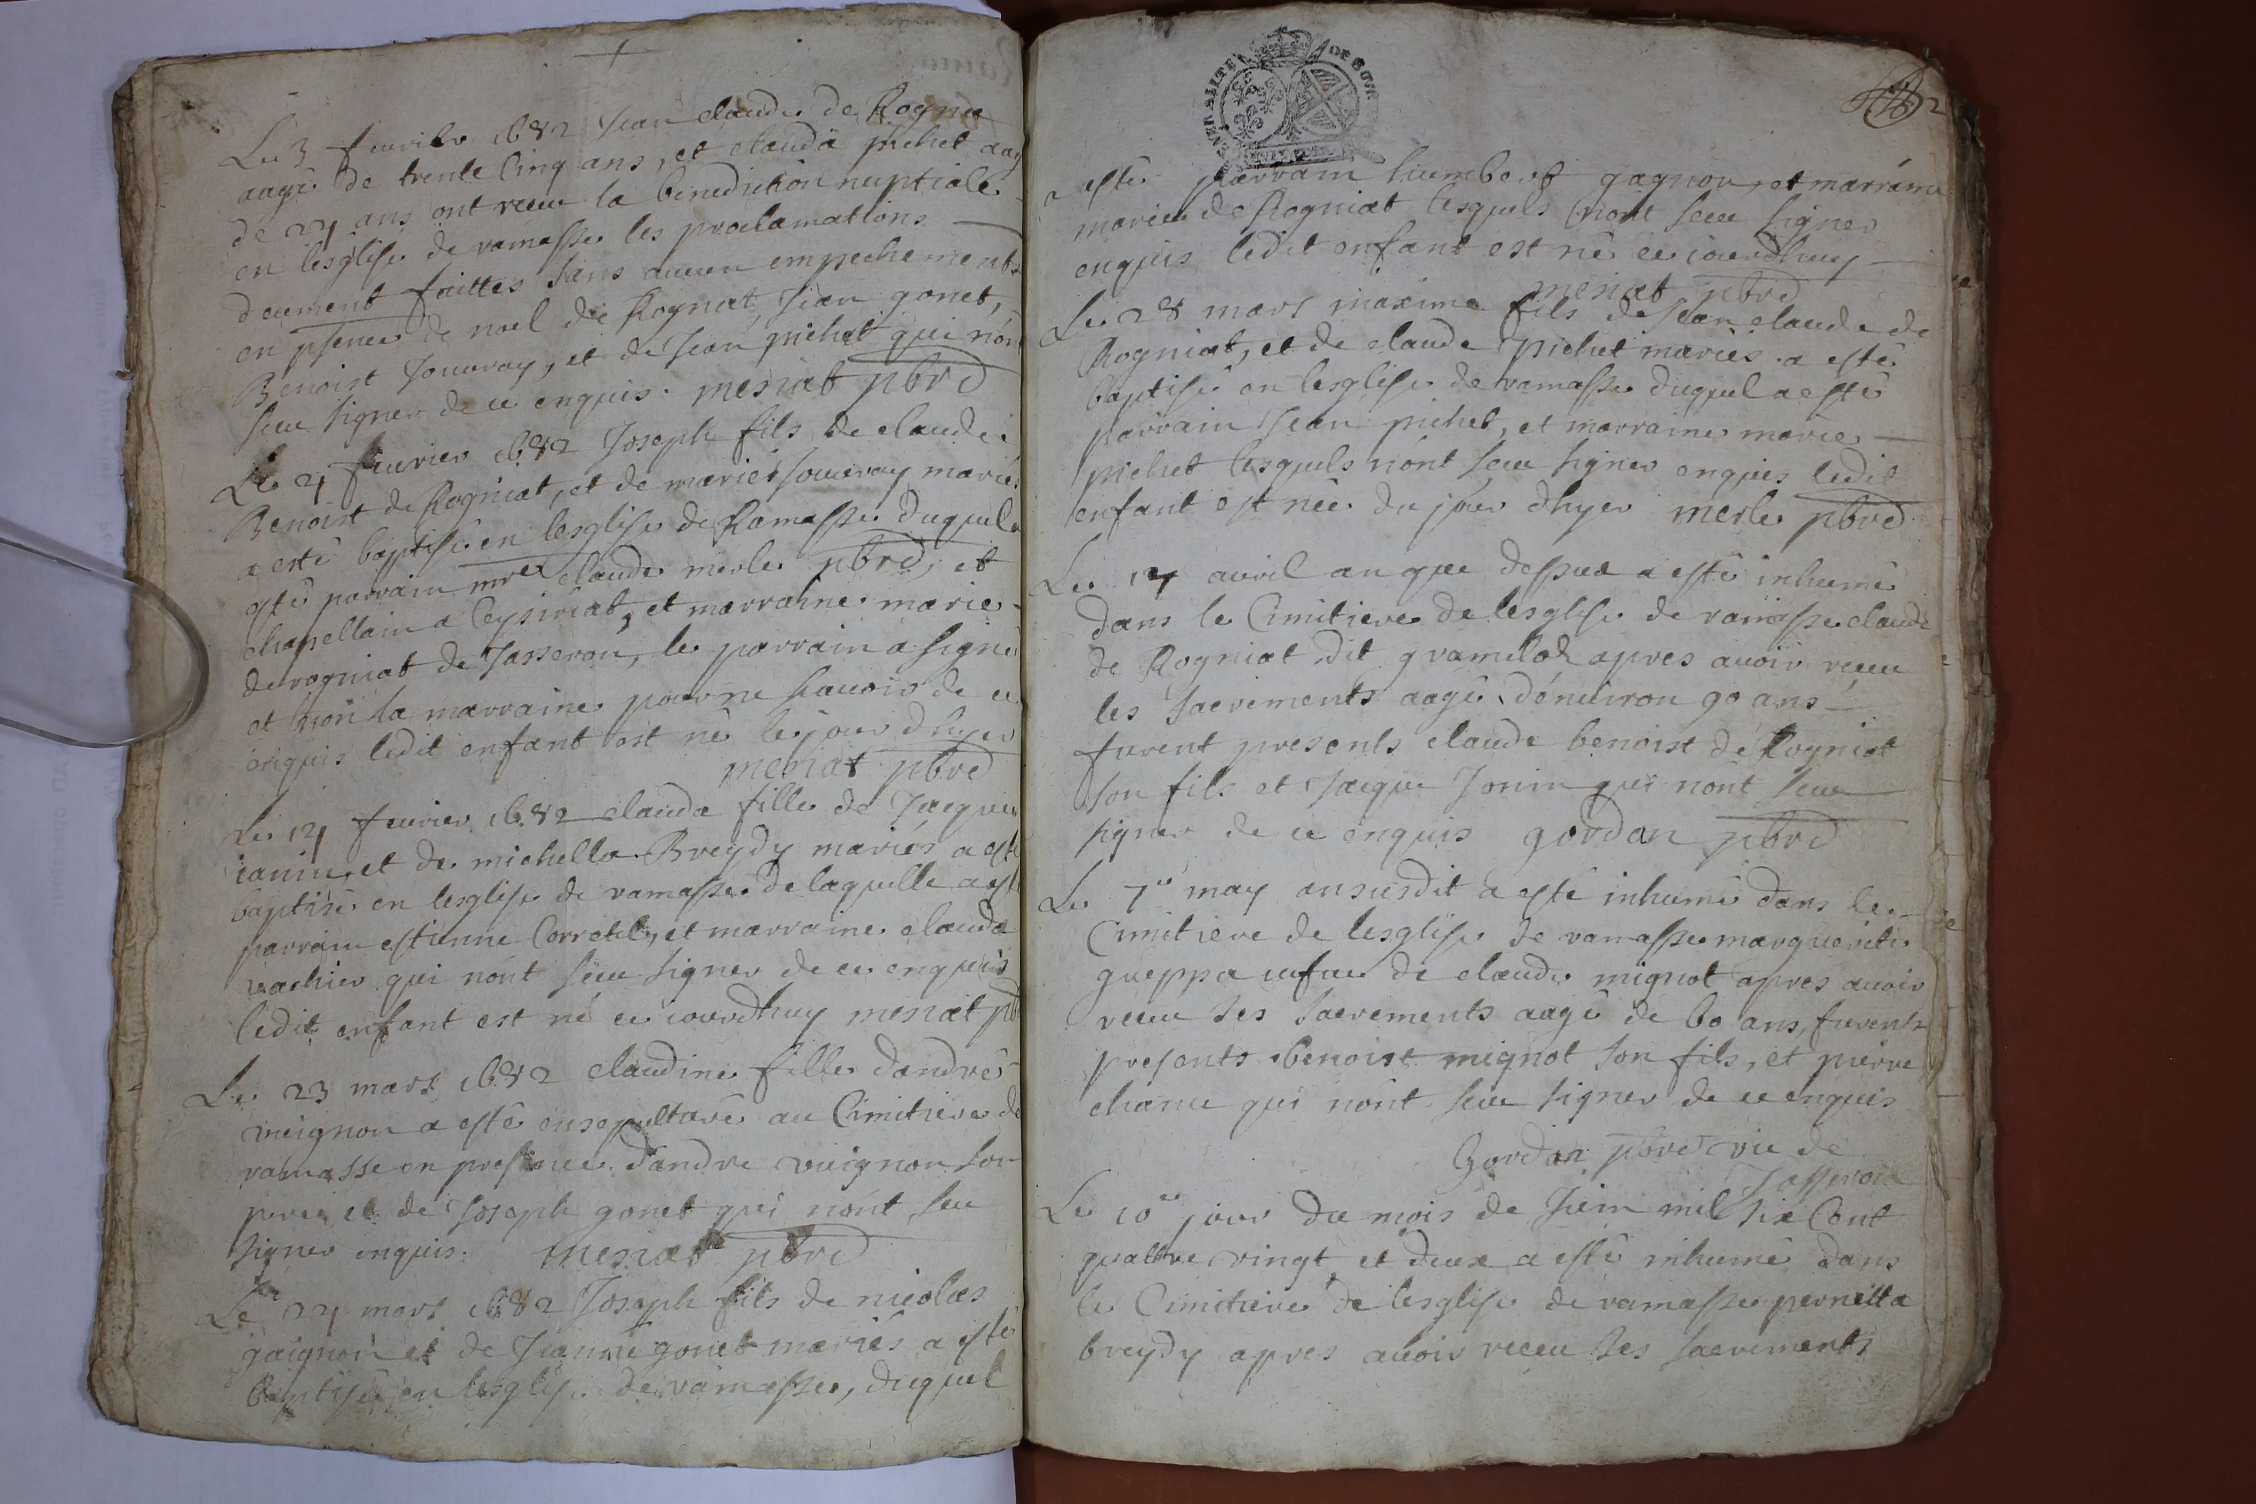 Le 3 feurier 1682 Jean claude de Rogniat
aagé de trente cinq ans, et clauda pichet aag
de 27 ans ont receu la benediction nuptiale
en lesglise de ramasse les proclamations
deuement faittes sans aucun empechements
en psence de noel de Rogniat, Jean gonet,
Benoist Jouuray, et de Jean pichet qui nont
sceu signer de ce enquis. mesiat pbre
Le 4 feurier 1682 Joseph fils de claude
Benoist de Rogniat, et de marie Jouuray mariés
a esté baptisé en lesglise de Ramasse duquel a
esté parrain mre claude merle pbre, et
chapellain a Ceysiriat, et marraine marie
de rogniat de Jasseron, le parrain a signé
et non la marraine pour ne scauoir de ce
enquis ledit enfant est né le jour dhyer
mesiat pbre
Le 14 feurier 1682 clauda fille de Jacques
ianin, et de michella Breydy mariés a esté
baptisé en lesglise de ramasse de laquelle a esté
parrain estienne Corretel, et marraine clauda
vachier qui nont sceu signer de ce enquis
ledit enfant est né ce iourdhuy mesiat pb
Le 23 mars 1682 claudine fille dandré
vuignon a esté ensepulturé au Cimitiere de
ramasse en presence dandre vuignon son
pere, et de Joseph gonet qui nont seu
signer enquis. mesiat pbre
Le 27 mars 1682 Joseph fils de nicolas
gaignon et de Jeanne gonet mariés a esté
baptisé en lesglise de ramasse, duquel
GENERALITE DE BOUR
2
a esté parrain humbert gagnon, et marraine
marie de Rogniat lesquels nont sceu signer
enquis ledit enfant est né ce iourdhuy
mesiat pbre
Le 28 mars maxime fils de Jean claude de
Rogniat, et de claude pichet mariés a esté
baptisé en lesglise de ramasse duquel a esté
parrain Jean pichet, et marraine marie
pichet lesquels nont sceu signer enquis ledit
enfant est née du jour dhyer merle pbre
Le 17 auril an que dessus a esté inhumé
dans le Cimitiere de lesglise de ramasse claude
de Rogniat dit apres auoir receu
les sacrements aagé denuiron 90 ans
furent presents claude benoist de Rogniat
son fils et Jacque Janin qui nont sceu
signer de ce enquis gordan pbre
Le 7e may an susdit a esté inhumé dans le
Cimitiere de lesglise de ramasse marguerite
greppa uefue de claude mignot apres auoir
receu ses sacrements aagé de 60 ans, furents
presents benoist mignot son fils, et pierre
chanu qui nont sceu signer de ce enquis
Gordan pbre vic de
Jasseron
Le 10e jour du mois de Juin mil six Cent
quattre vingt et deux a esté inhumé dans
le Cimitiere de lesglise de ramasse pernetta
breydy apres auoir receu ses sacrements